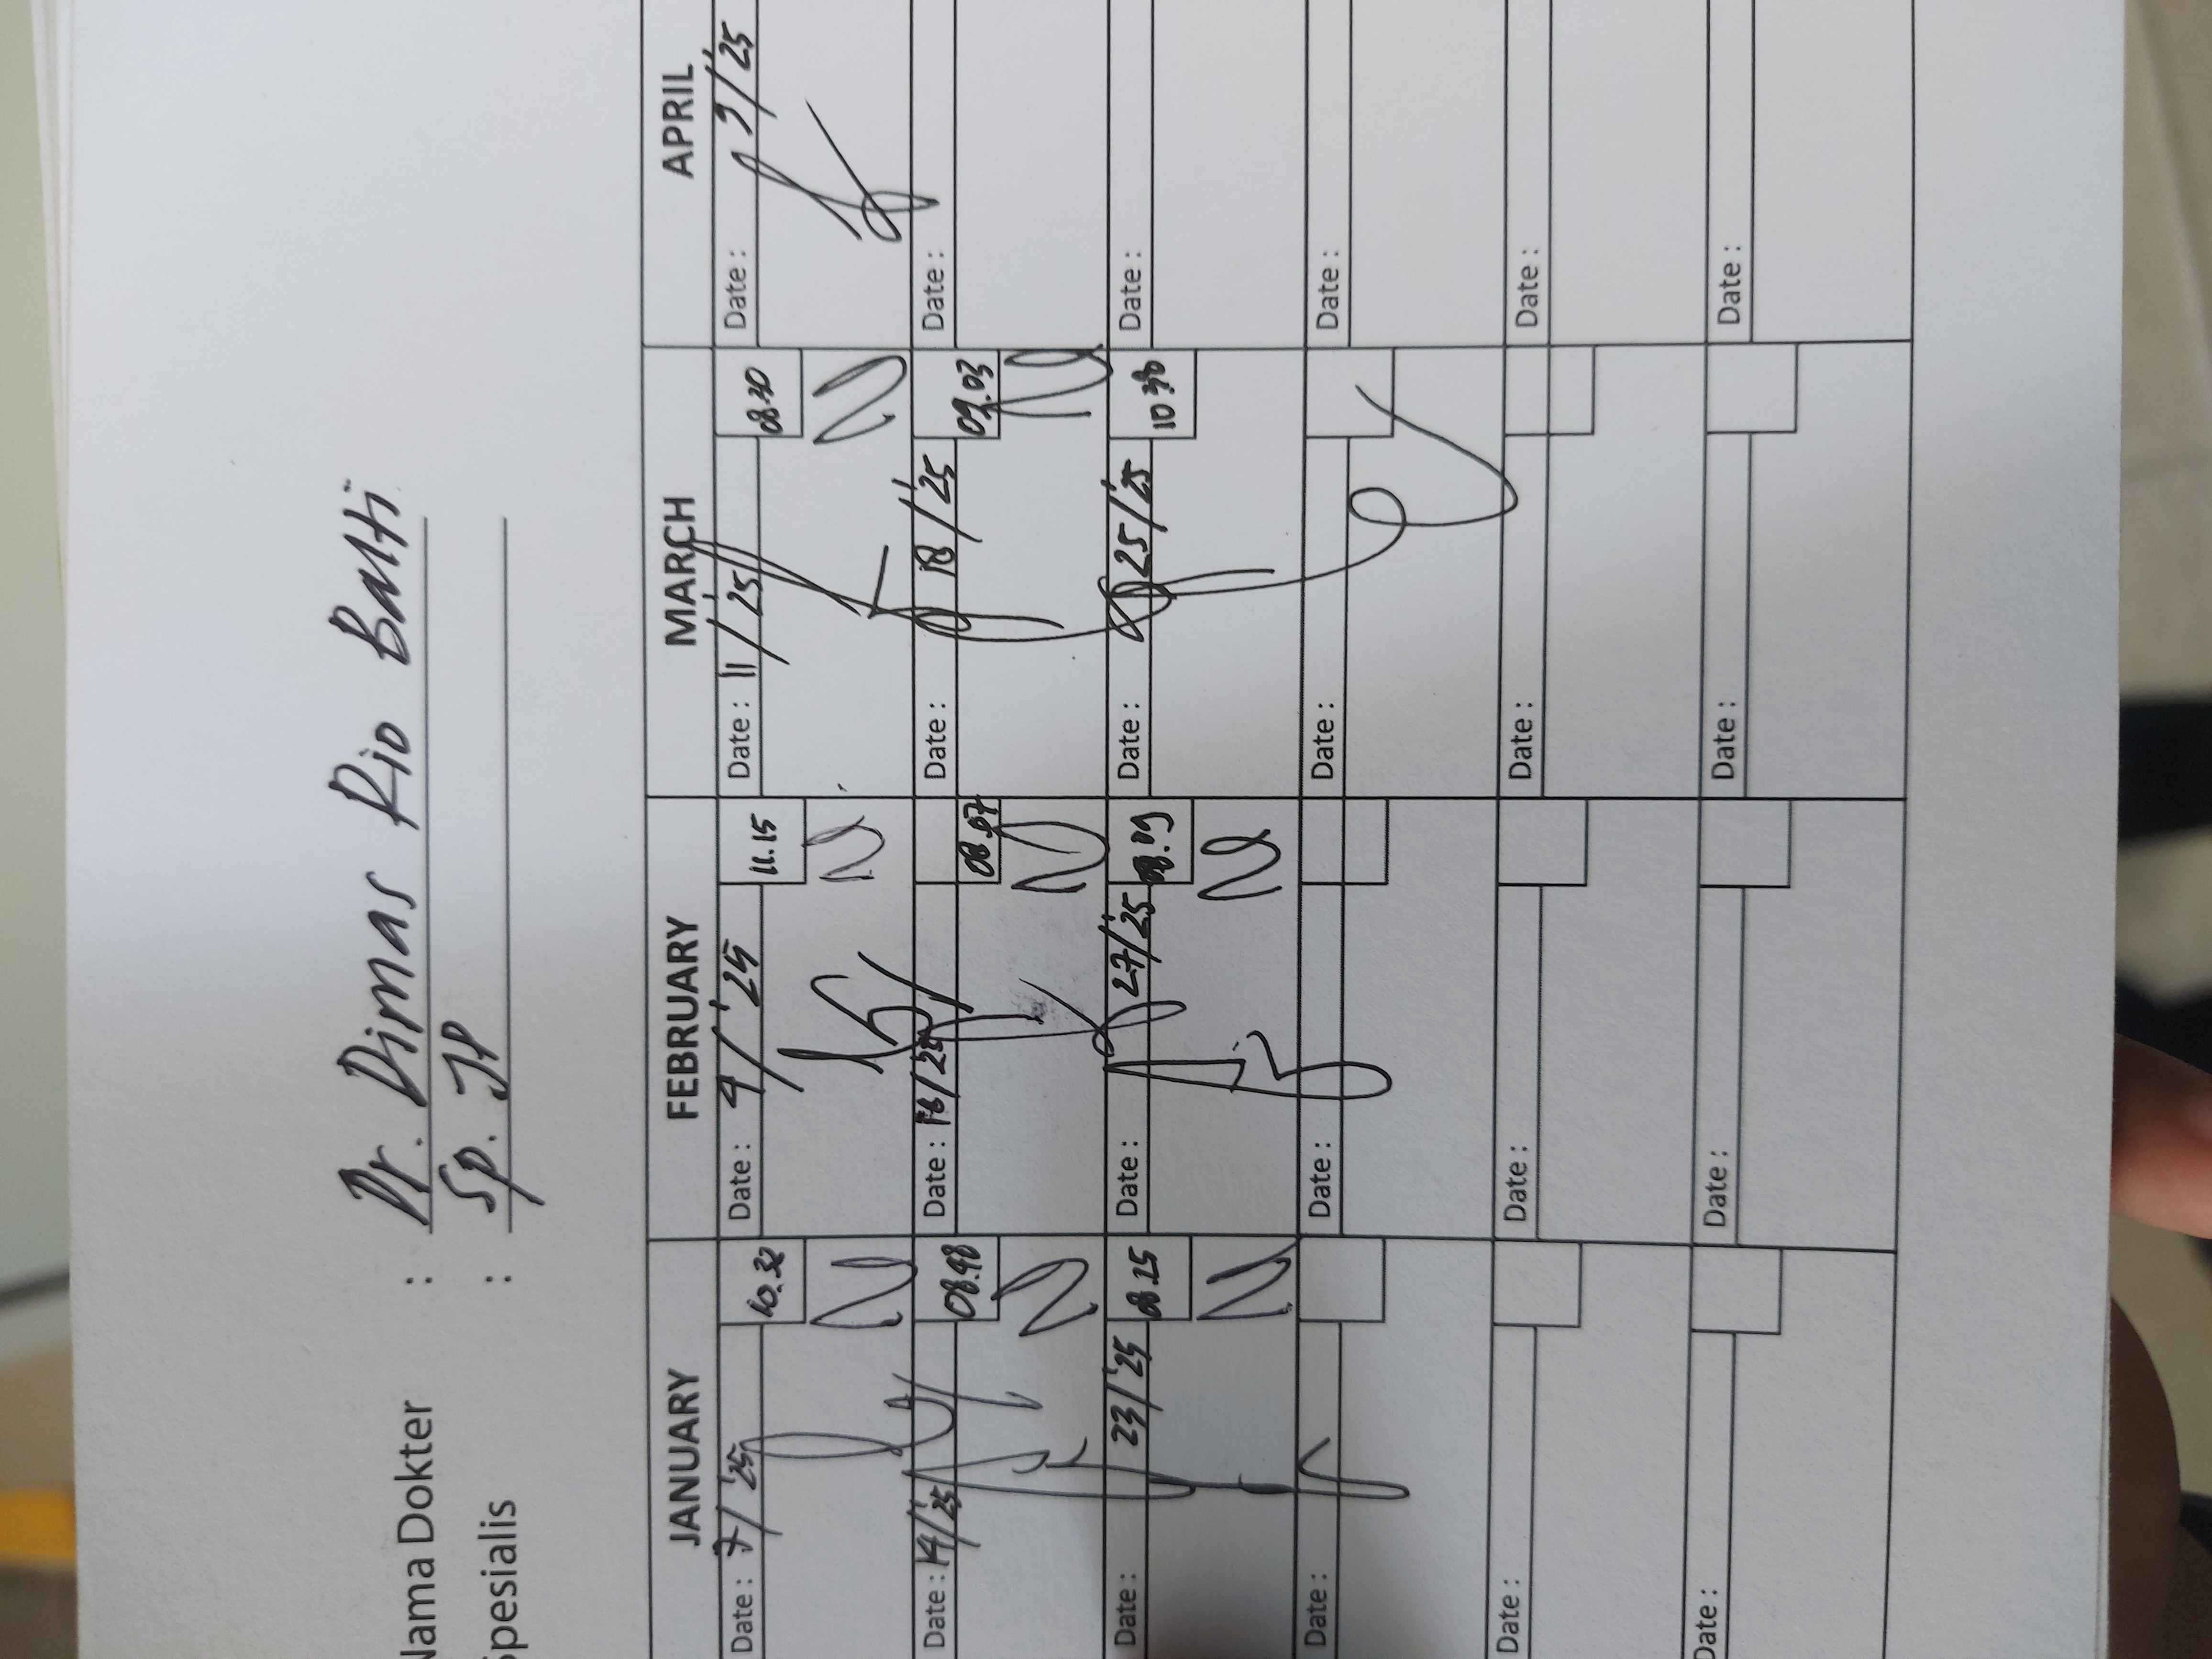 Nama Dokter : Dr. Dimas Rio Balti
Spesialis : Sp. JP
JANUARY FEBRUARY MARCH APRIL
Date : 7/'25 10.32 Date : 4/'25 11.15 Date : 11/'25 08.30 Date : 9/'25
Date : 14/'25 08.48 Date : 18/'25 08.07 Date : 18/'25 09.03 Date :
Date : 23/'25 08.25 Date : 27/'25 08.09 Date : 25/'25 10 Date :
Date : Date : Date : Date :
Date : Date : Date : Date :
Date : Date : Date : Date :